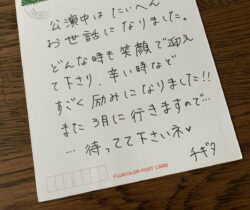 公演中はたいへん
お世話になりました。
どんな時も笑顔で迎え
て下さり、辛い時など
すごく励みになりました!!
また3月に行きますので…
… 待ってて下さいネ♥
チギタ
FUJICOLOR POST CARD